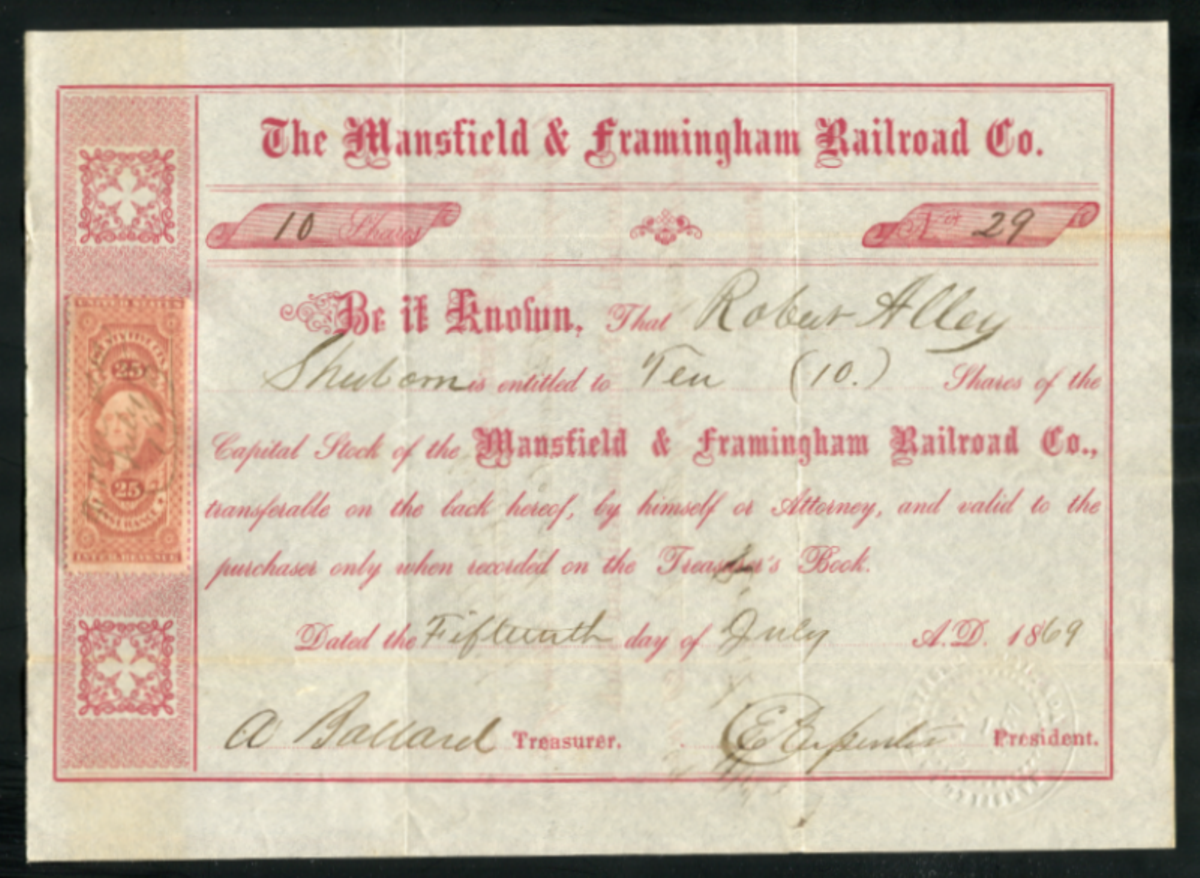 The Mansfield & Framingham Railroad Co.
10 Shares No 29
Be it Known, That Robert Alley
Sherborn is entitled to Ten (10.) Shares of the
Capital Stock of the Mansfield & Framingham Railroad Co.,
transferable on the back hereof, by himself or Attorney, and valid to the
purchaser only when recorded on the Treasurer's Book.
Dated the Fifteenth day of July A.D. 1869
A Ballard Treasurer. President.
UNITED STATES
25
25
INSURANCE
INTER. REVENUE